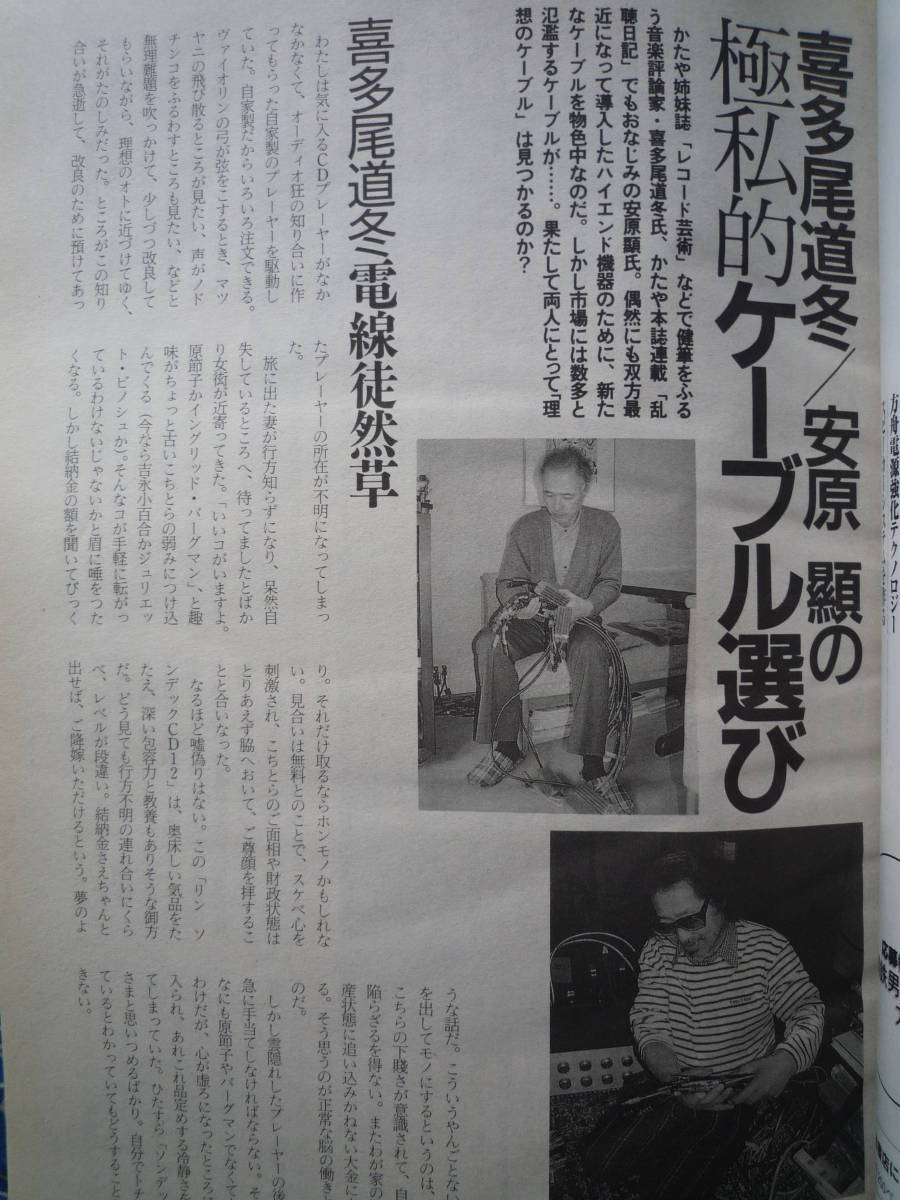 喜多尾道冬／安原 顯の
極私的ケーブル選び
かたや姉妹誌「レコード芸術」などで健筆をふる
う音楽評論家・喜多尾道冬氏、かたや本誌連載「乱
聴日記」でもおなじみの安原顯氏。偶然にも双方最
近になって導入したハイエンド機器のために、新た
なケーブルを物色中なのだ。しかし市場には数多と
氾濫するケーブルが……。果たして両人にとって「理
想のケーブル」は見つかるのか？
喜多尾道冬 電線徒然草
わたしは気に入るCDプレーヤーがなか
なかなくて、オーディオ狂の知り合いに作
ってもらった自家製のプレーヤーを駆動し
ていた。自家製だからいろいろ注文できる。
ヴァイオリンの弓が弦をこするとき、マツ
ヤニの飛び散るところが見たい、声がノド
チンコをふるわすところも見たい、などと
無理難題を吹っかけて、少しづつ改良して
もらいながら、理想のオトに近づけてゆく、
それがたのしみだった。ところがこの知り
合いが急逝して、改良のために預けてあっ
たプレーヤーの所在が不明になってしまっ
た。
旅に出た妻が行方知らずになり、呆然自
失しているところへ、待ってましたとばか
り女衒が近寄ってきた。「いいコがいますよ。
原節子かイングリッド・バーグマン」、と趣
味がちょっと古いこちとらの弱みにつけ込
んでくる（今なら吉永小百合かジュリエッ
ト・ビノシュか）。そんなコが手軽に転がっ
ているわけないじゃないかと眉に唾をつた
くなる。しかし結納金の額を聞いてびっく
り。それだけ取るならホンモノかもしれな
い。見合いは無料とのことで、スケベ心を
刺激され、こちとらのご面相や財政状態は
とりあえず脇へおいて、ご尊顔を拝するこ
とと合いなった。
なるほど嘘偽りはない。この「リン ソ
ンデックCD12」は、奥床しい気品をた
たえ、深い包容力と教養もありそうな御方
だ。どう見ても行方不明の連れ合いにくら
べ、レベルが段違い。結納金さえちゃんと
出せば、ご降嫁いただけるという。夢のよ
うな話だ。こういうやんごとない
を出してモノにするというのは、
こちらの下賤さが意識されて、自
陥らざるを得ない。またわが家の
産状態に追い込みかねない大金に
る。そう思うのが正常な脳の働き
のだ。
しかし雲隠れしたプレーヤーの後
急に手当てしなければならない。そ
なにも原節子やバーグマンでなくて
わけだが、心が虚ろになったところ
入られ、あれこれ品定めする冷静さ
てしまっていた。ひたすら「ソンデッ
さまと思いつめるばかり。自分でトチ
ているとわかっていてもどうすること
きない。
方舟電源強化テクノロジー